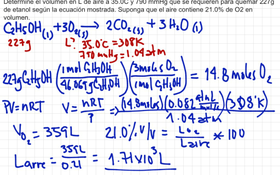 Determine el volumen en L de aire a 35.0C y 790 mmHg que se requieren para quemar 227g
de etanol según la ecuación mostrada. Suponga que el aire contiene 21.0% de O2 en
volumen.
C₂H₅OH(l) + 3O₂(g) → 2CO₂(g) + 3H₂O(l)
227g L? 35.0°C = 308K
790 mmHg = 1.04 atm
227g C₂H₅OH (1 mol C₂H₅OH / 46.069g C₂H₅OH) (3 mol O₂ / 1 mol C₂H₅OH) = 14.8 moles O₂
PV = nRT V = nRT/P = (14.8 moles)(0.082 atm L/mol K)(308K) / 1.04 atm
V O₂ = 359L 21.0% v/v = L O₂ / L aire * 100
L aire = 359L / 0.21 = 1.71 x 10³ L